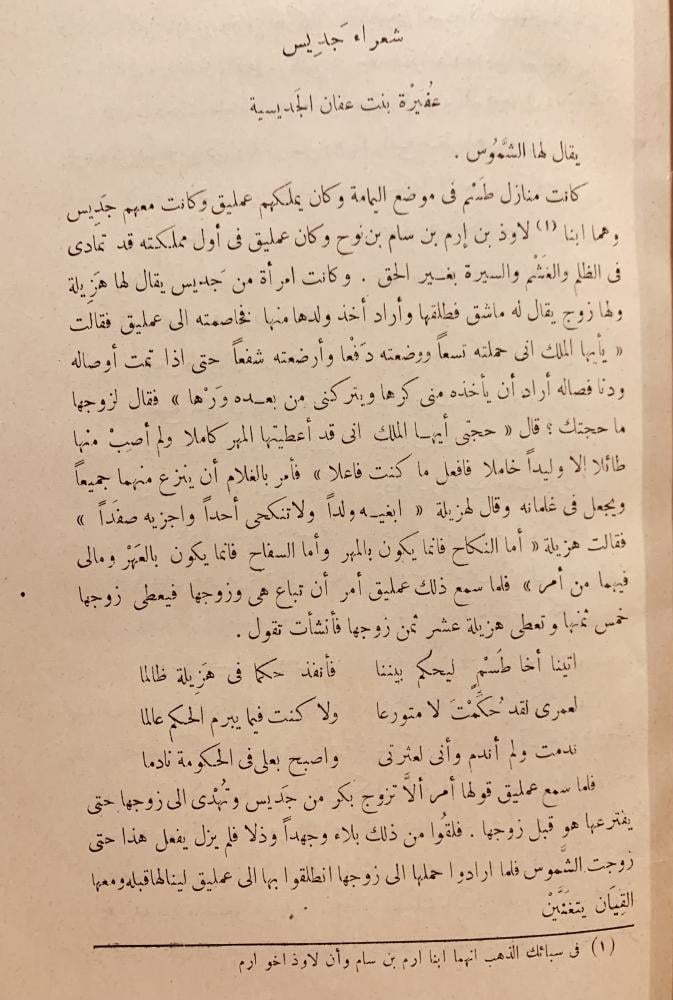 شعراء جَدِيس
عُفَيْرة بنت عفان الجَديسية
يقال لها الشَّمُوس .
كانت منازل طَسْم فى موضع اليمامة وكان يملكهم عمليق وكانت معهم جَدِيس
وهما ابنا (١) لاوذ بن إرم بن سام بن نوح وكان عمليق فى أول مملكته قد تمادى
فى الظلم والغَشْم والسيرة بغير الحق . وكانت امرأة من جَديس يقال لها هَزِيلة
ولها زوج يقال له ماشق فطلقها وأراد أخذ ولدها منها فخاصمته الى عمليق فقالت
« يأيها الملك انى حملته تسعاً ووضعته دَفْعا وأرضعته شفعاً حتى اذا تمت أوصاله
ودنا فصاله أراد أن يأخذه منى كرها ويتركنى من بعده وَرْها » فقال لزوجها
ما حجتك ؟ قال « حجتى أيها الملك انى قد أعطيتها المهر كاملا ولم أصِبْ منها
طائلا إلا وليداً خاملا فافعل ما كنت فاعلا » فأمر بالغلام أن ينزع منهما جميعاً
ويجعل فى غلمانه وقال لهزيلة « ابغيه ولداً ولاتنكحى أحداً واجزيه صفَداً »
فقالت هزيلة « أما النكاح فانما يكون بالمهر وأما السفاح فانما يكون بالعَهْر ومالى
فيهما من أمر » فلما سمع ذلك عمليق أمر أن تباع هى وزوجها فيعطى زوجها
خمس ثمنها وتعطى هزيلة عشر ثمن زوجها فأنشأت تقول .
اتينا أخا طَسْمٍ ليحكم بيننا فأنفذ حكما فى هَزِيلة ظالما
لعمرى لقد حُكِّمْتَ لا متورعا ولا كنت فيما يبرم الحكم عالما
ندمت ولم أندم وأنى لعثرتى واصبح بعلى فى الحكومة نادما
فلما سمع عمليق قولها أمر ألاَّ تزوج بكر من جَديس وتُهْدى الى زوجها حتى
يفترعها هو قبل زوجها . فلقُوا من ذلك بلاء وجهداً وذلا فلم يزل يفعل هذا حتى
زوجت الشَّموس فلما ارادوا حملها الى زوجها انطلقوا بها الى عمليق لينالها قبله ومعها
القِيَان يتغنَّيْنَ
(١) فى سبائك الذهب انهما ابنا ارم بن سام وأن لاوذ اخو ارم